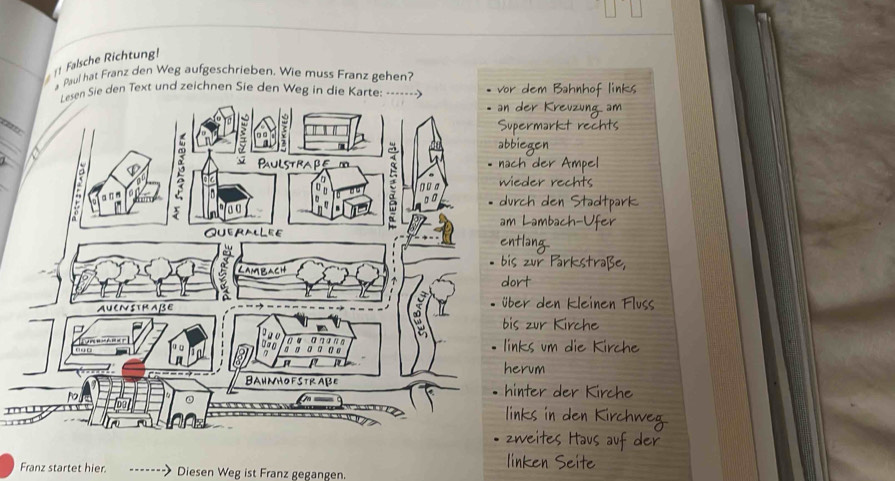 11 Falsche Richtung!
a Paul hat Franz den Weg aufgeschrieben. Wie muss Franz gehen?
Lesen Sie den Text und zeichnen Sie den Weg in die Karte:
KIRCHWEG
LINKWEG
PAULSTRAßE
POSTSTRAßE
AM STADTGRABEN
FRIEDRICHSTRAßE
QUERALLEE
PARKSTRAßE
LAMBACH
AUENSTRAßE
SEEBACH
SUPERMARKT
BAHNHOFSTRAßE
DB
Franz startet hier.
Diesen Weg ist Franz gegangen.
• vor dem Bahnhof links
• an der Kreuzung am
Supermarkt rechts
abbiegen
• nach der Ampel
wieder rechts
• durch den Stadtpark
am Lambach-Ufer
entlang
• bis zur Parkstraße,
dort
• über den kleinen Fluss
bis zur Kirche
• links um die Kirche
herum
• hinter der Kirche
links in den Kirchweg
• zweites Haus auf der
linken Seite